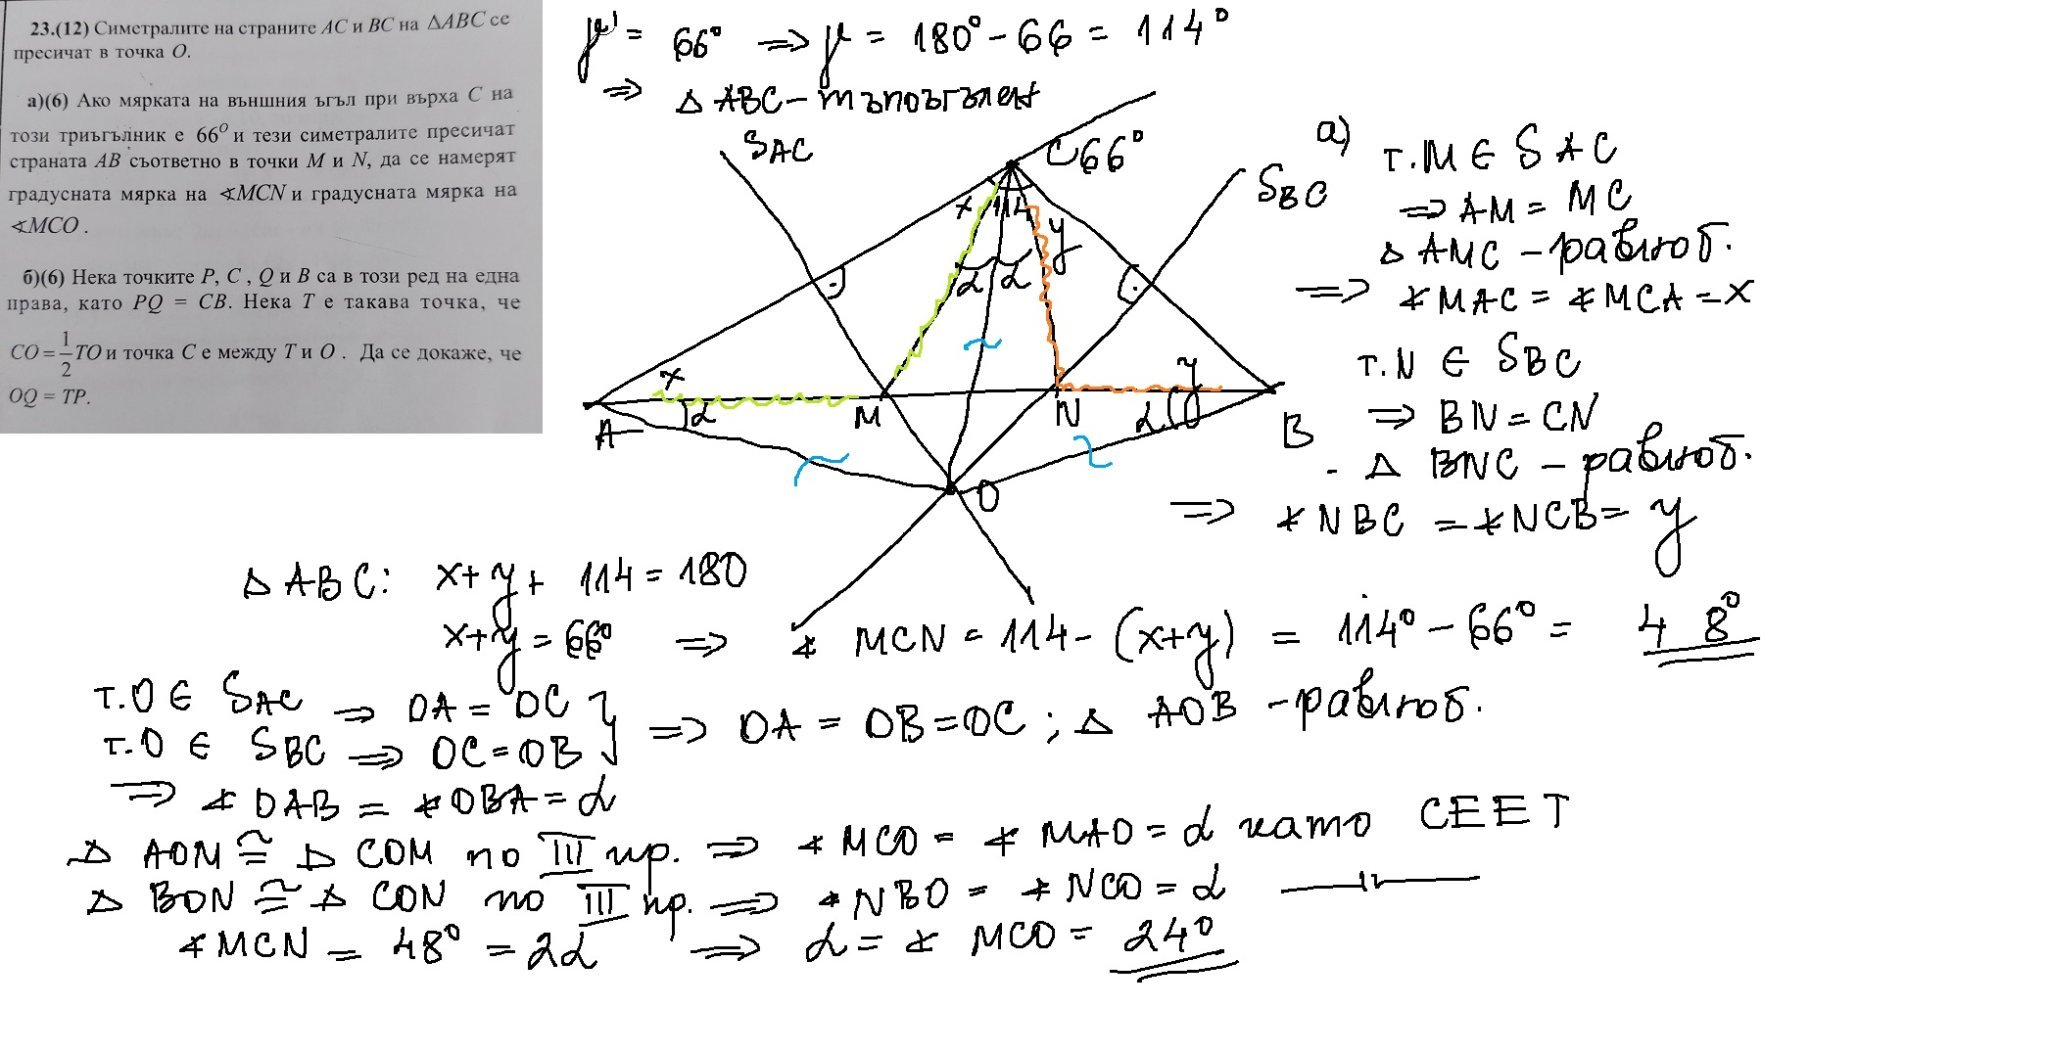 23.(12) Симетралите на страните AC и BC на ΔABC се
пресичат в точка O.
а)(6) Ако мярката на външния ъгъл при върха C на
този триъгълник е 66⁰ и тези симетралите пресичат
страната AB съответно в точки M и N, да се намерят
градусната мярка на ∢MCN и градусната мярка на
∢MCO .
б)(6) Нека точките P, C , Q и B са в този ред на една
права, като PQ = CB. Нека T е такава точка, че
CO = 1/2 TO и точка C е между T и O . Да се докаже, че
OQ = TP.
γ' = 66° ⇒ γ = 180° - 66 = 114°
⇒ Δ ABC - тъпоъгълен
SAC
C 66°
SBC
x 114 y
α α
x α M N α y
A B
O
а) т.M ∈ SAC
⇒ AM = MC
Δ AMC - равноб.
⇒ ∢MAC = ∢MCA = x
т.N ∈ SBC
⇒ BN = CN
Δ BNC - равноб.
⇒ ∢NBC = ∢NCB = y
Δ ABC: x+y+ 114 = 180
x+y = 66° ⇒ ∢ MCN = 114 - (x+y) = 114° - 66° = 48°
т.O ∈ SAC ⇒ OA = OC }
т.O ∈ SBC ⇒ OC = OB } ⇒ OA = OB = OC ; Δ AOB - равноб.
⇒ ∢OAB = ∢OBA = α
Δ AOM ≅ Δ COM по III пр. ⇒ ∢MCO = ∢ MAO = α като СЕЕТ
Δ BON ≅ Δ CON по III пр. ⇒ ∢NBO = ∢NCO = α —"—
∢MCN = 48° = 2α ⇒ α = ∢ MCO = 24°